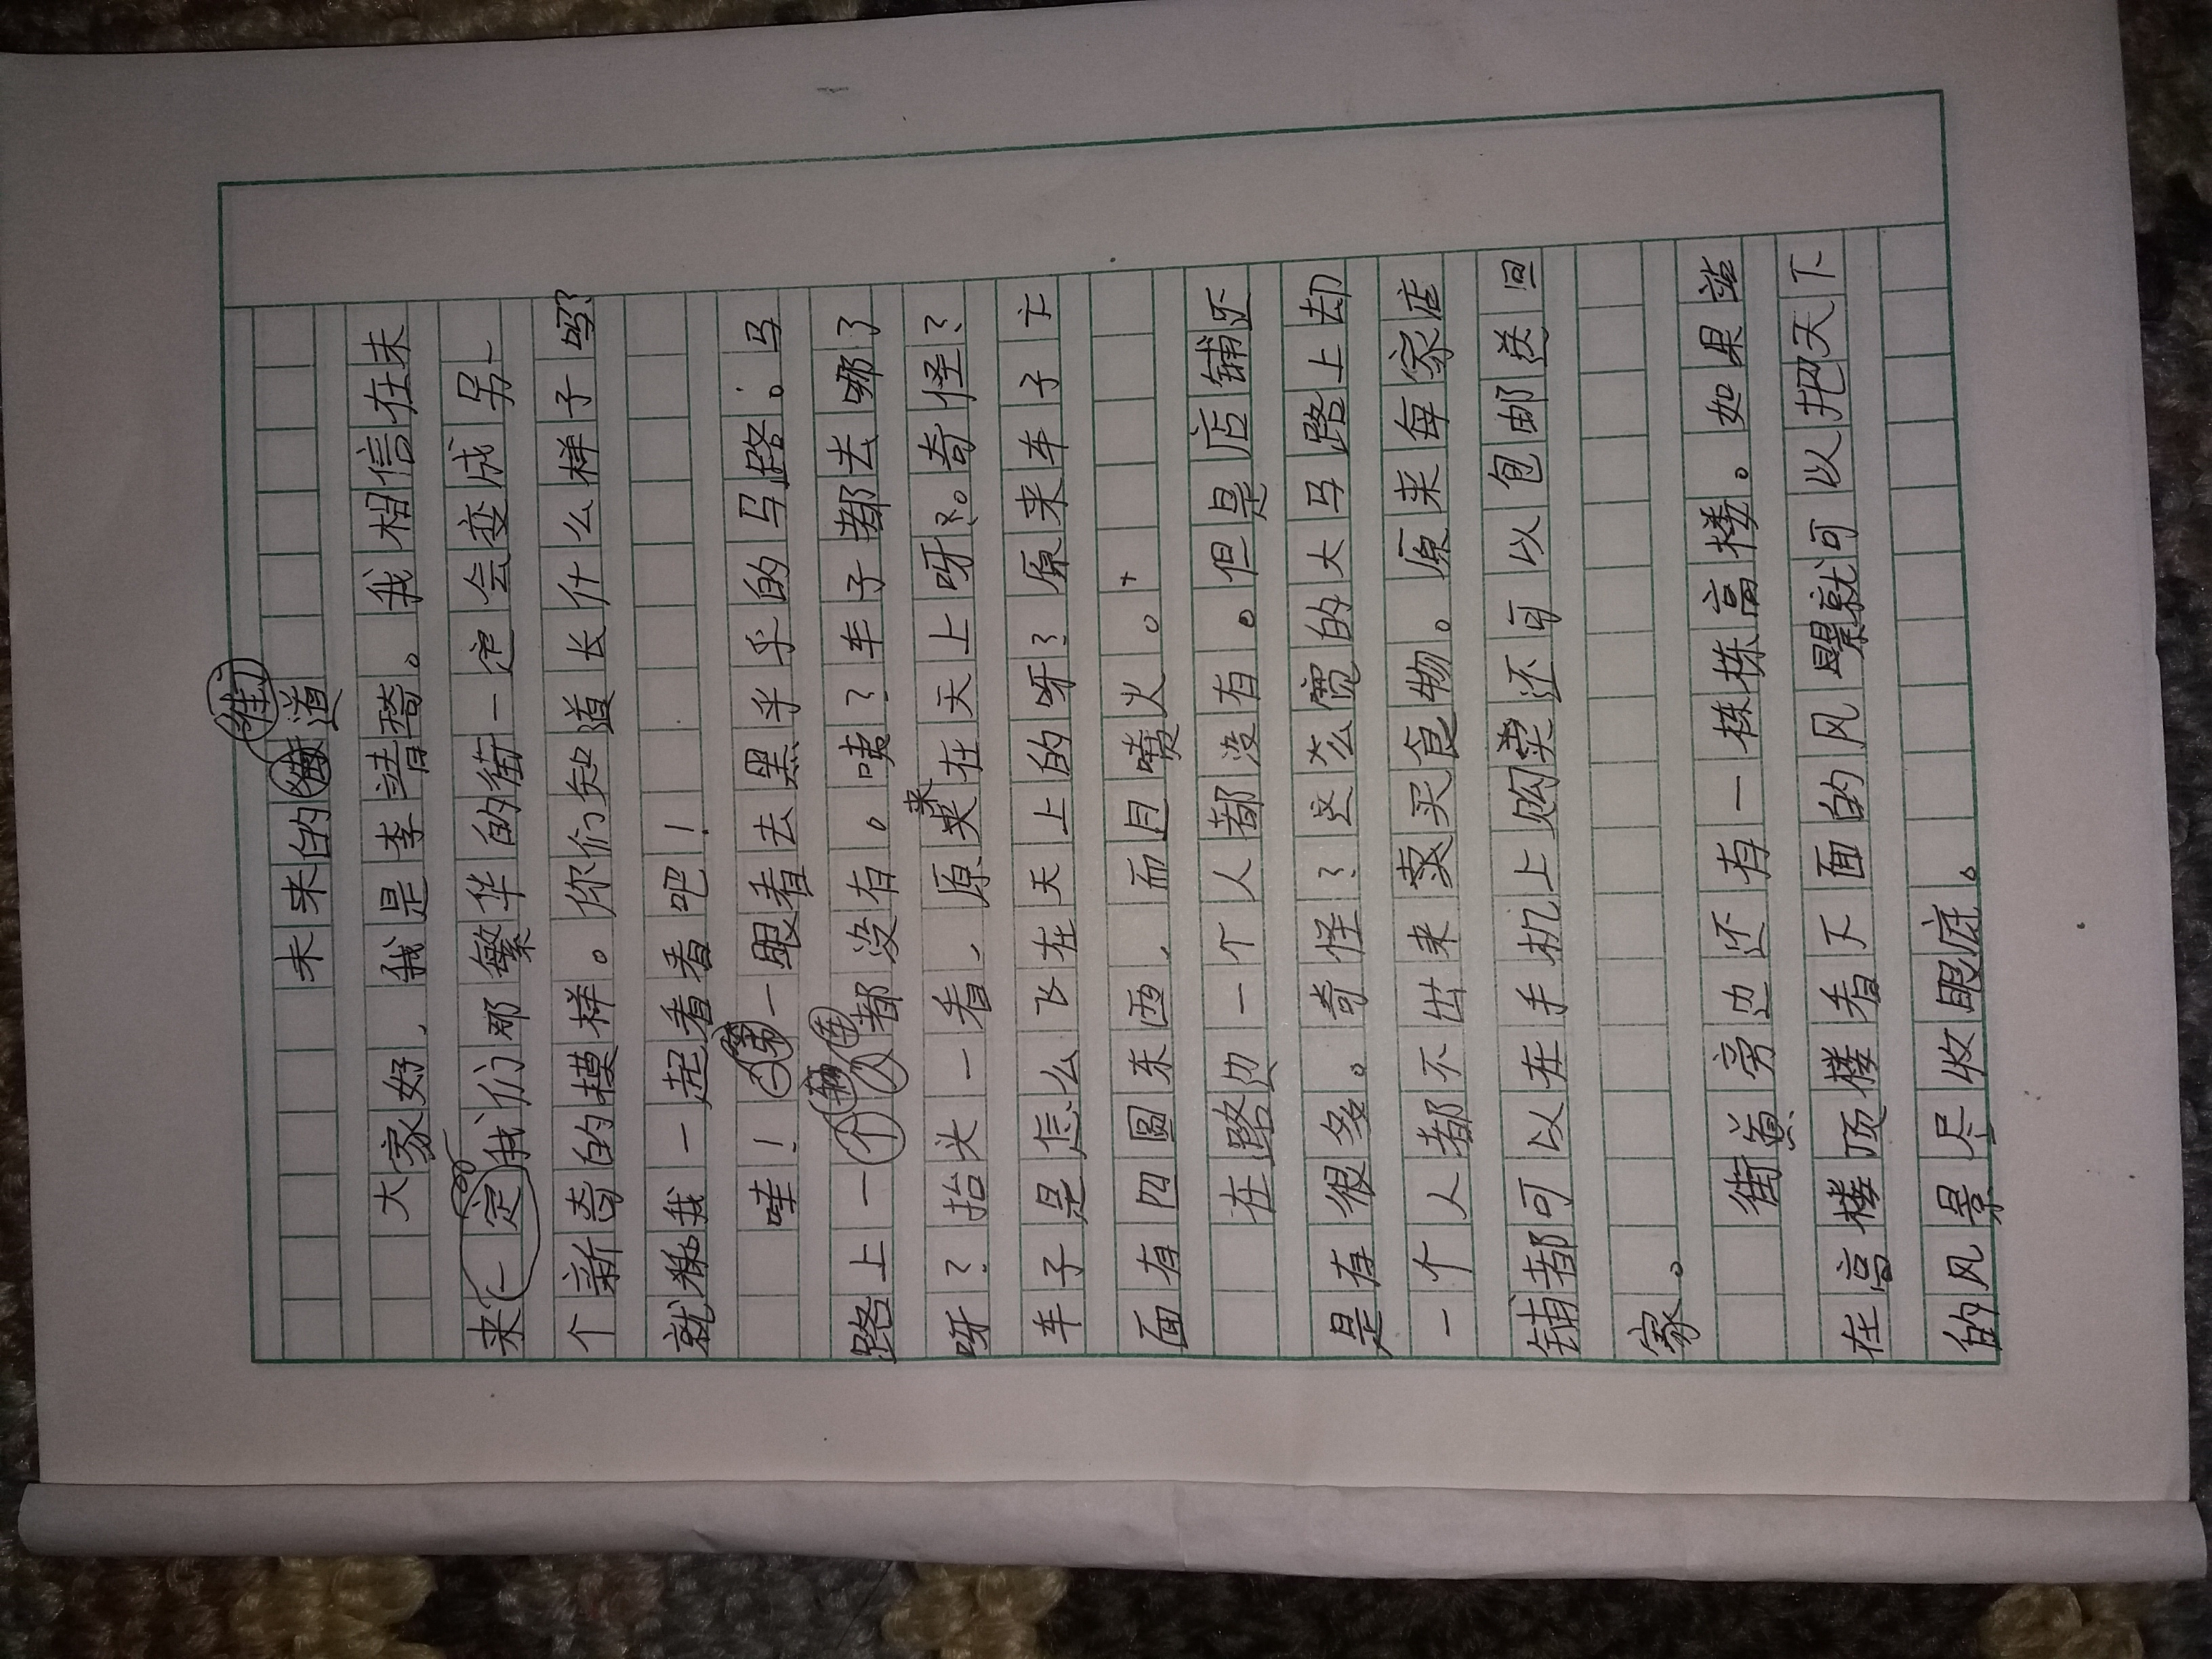 未来的街道
大家好，我是李靖琦。我相信在未
来一定我们那繁华的街一定会变成另一
个新奇的模样。你们知道长什么样子吗？
就和我一起看看吧！
哇！第一眼看去黑乎乎的马路。马
路上一个人都没有。咦？车子都去哪了
呀？抬头一看，原来在天上呀？。奇怪？
车子是怎么飞在天上的呀？原来车子下
面有四圆东西，而且喷火。
在路边一个人都没有。但是店铺还
是有很多。奇怪？这么宽的大马路上却
一个人都不出来卖买食物。原来每家店
铺都可以在手机上购卖还可以包邮送回
家。
街道旁边还有一栋栋高楼。如果站
在高楼顶楼看下面的风景就可以把天下
的风景尽收眼底。